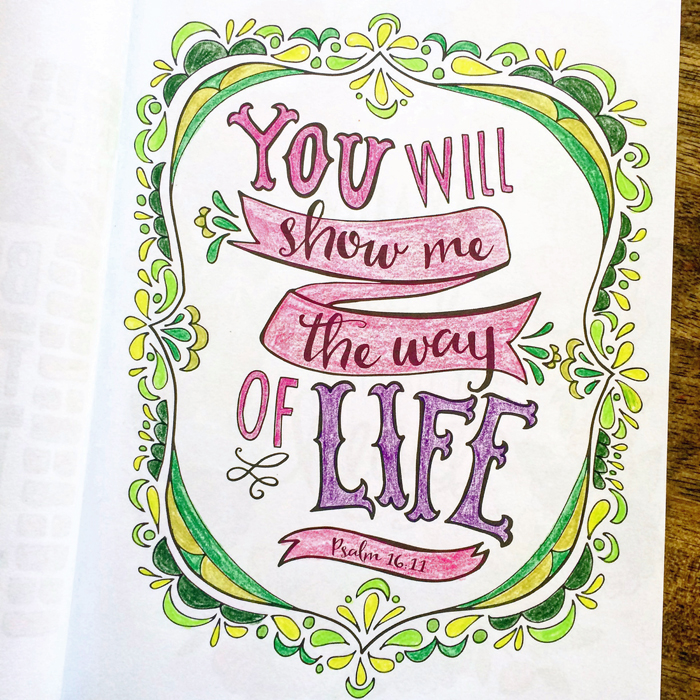 YOU WILL
show me
the way
OF
LIFE
Psalm 16:11